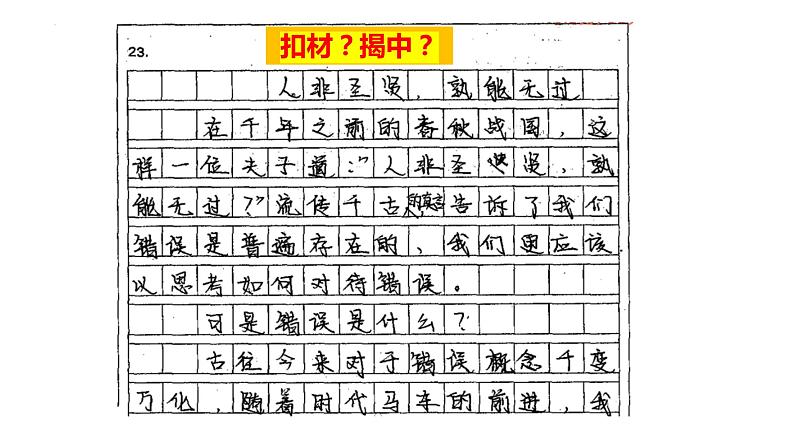 扣材？揭中？
23.
人非圣贤，孰能无过
在千年之前的春秋战国，这
样一位夫子道：“人非圣贤，孰
能无过？”流传千古的真言告诉了我们
错误是普遍存在的，我们更应该
以思考如何对待错误。
可是错误是什么？
古往今来对于错误概念千变
万化，随着时代马车的前进，我